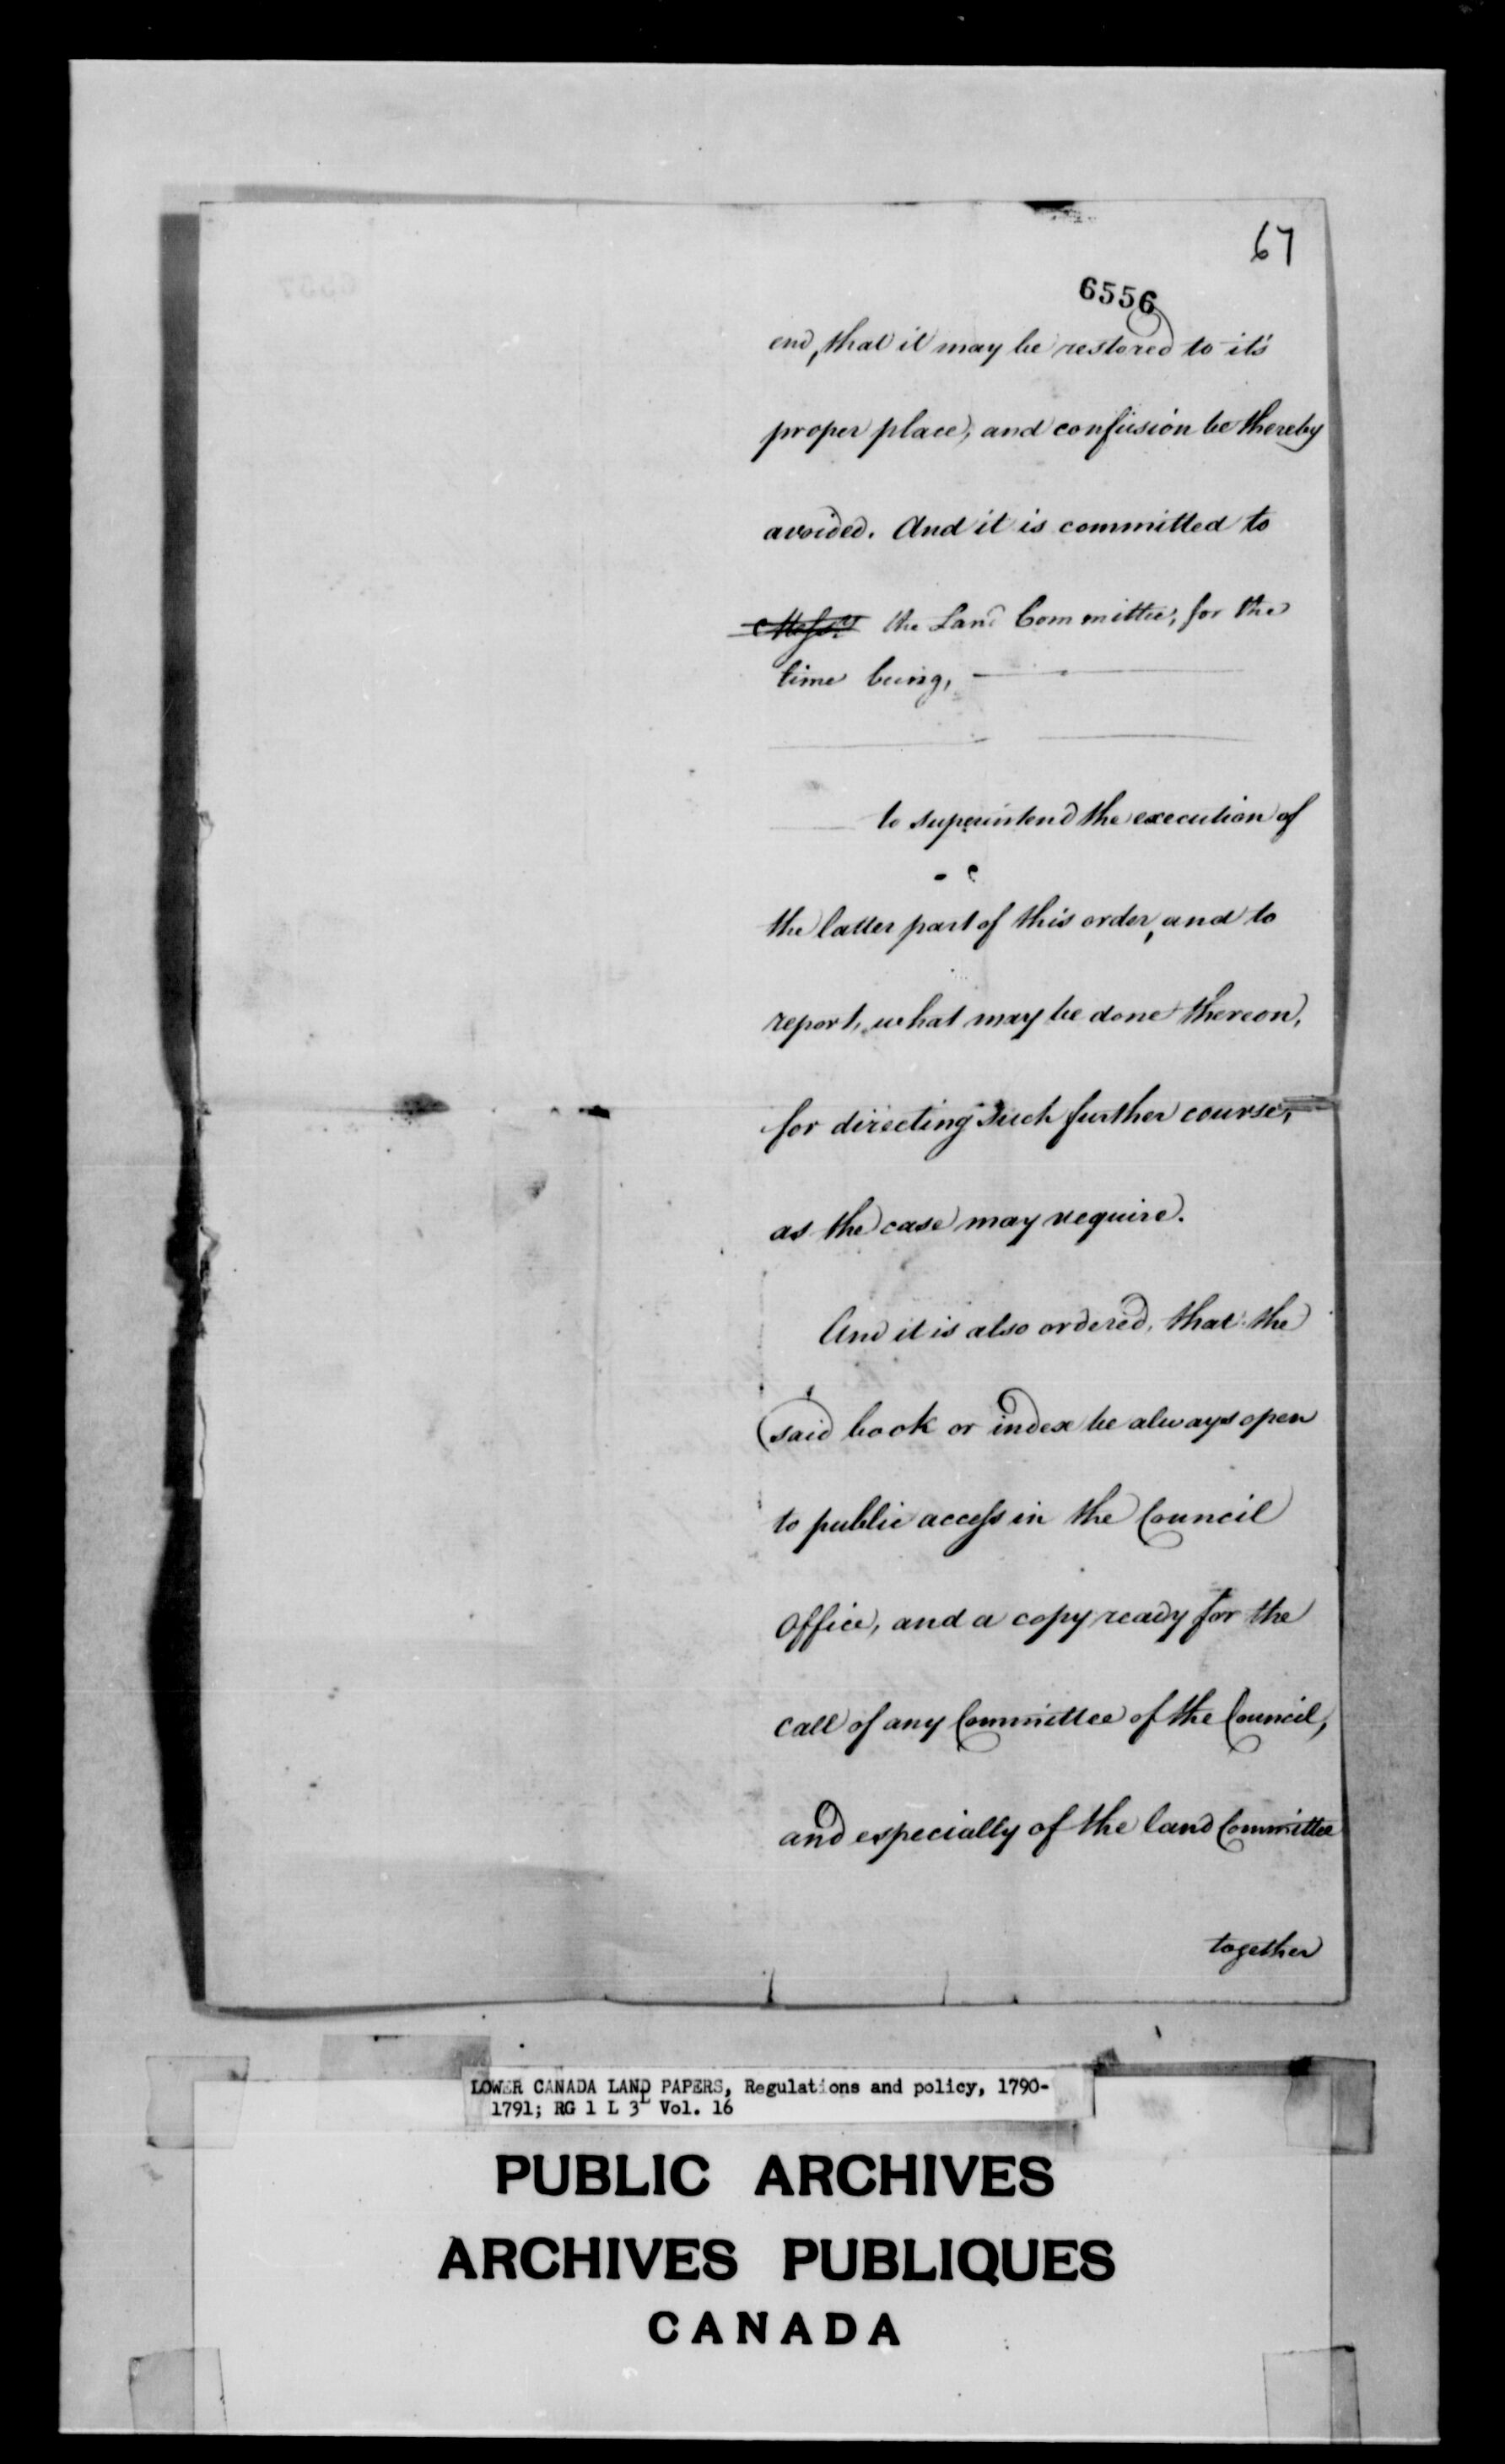 67
6556
end, that it may be restored to it's
proper place, and confusion be thereby
avoided. And it is committed to
Messrs the Land Committee, for the
time being,
to superintend the execution of
the latter part of this order, and to
report, what may be done thereon,
for directing such further course,
as the case may require.
And it is also ordered, that the
said book or index be always open
to public access in the Council
Office, and a copy ready for the
call of any Committee of the Council,
and especially of the land Committee
together
LOWER CANADA LAND PAPERS, Regulations and policy, 1790-
1791; RG 1 L 3L Vol. 16
PUBLIC ARCHIVES
ARCHIVES PUBLIQUES
CANADA